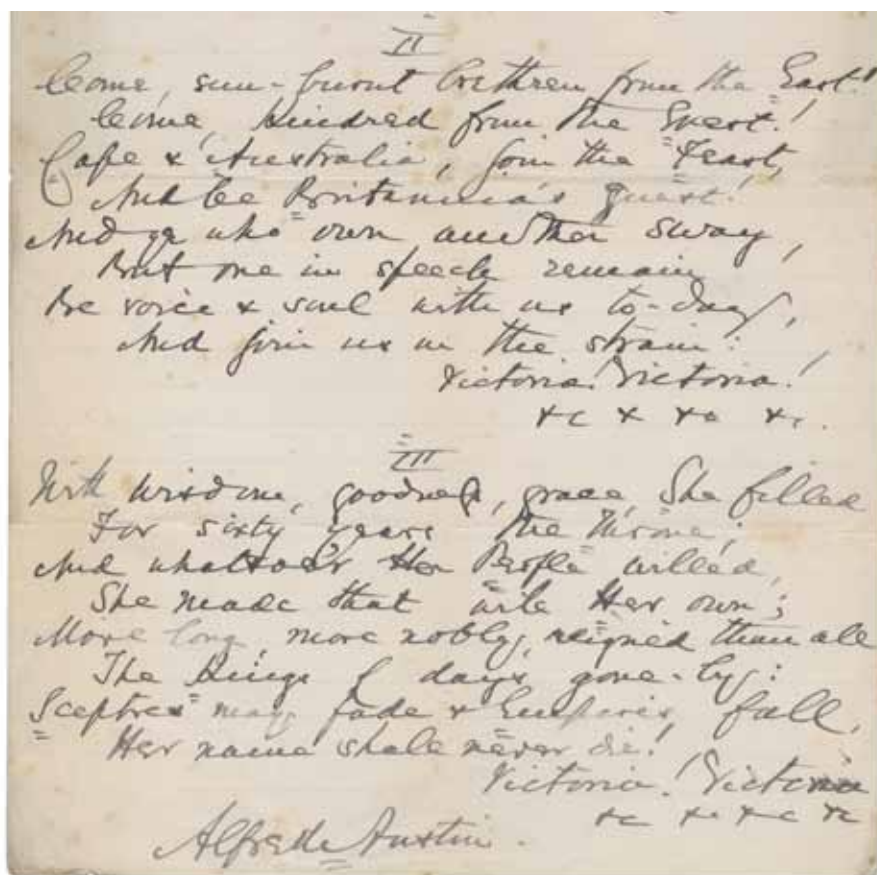 II
Come, sun-burnt brethren from the East!
Come, kindred from the West!
Cape & Australia, join the Feast,
And be Britannia's guest!
And ye who own another sway,
But one in speech remain,
Be voice & soul with us to-day,
And join us in the strain:
Victoria! Victoria!
&c & &c &c.
III
With wisdom, goodness, grace, She filled
For sixty years the Throne;
And whatsoe'er Her People willed,
She made that will Her own;
More long, more nobly, reigned than all
The Kings of days gone-by:
Sceptres may fade & Empires fall,
Her name shall never die!
Victoria! Victoria
&c &c &c &c
Alfred Austin.